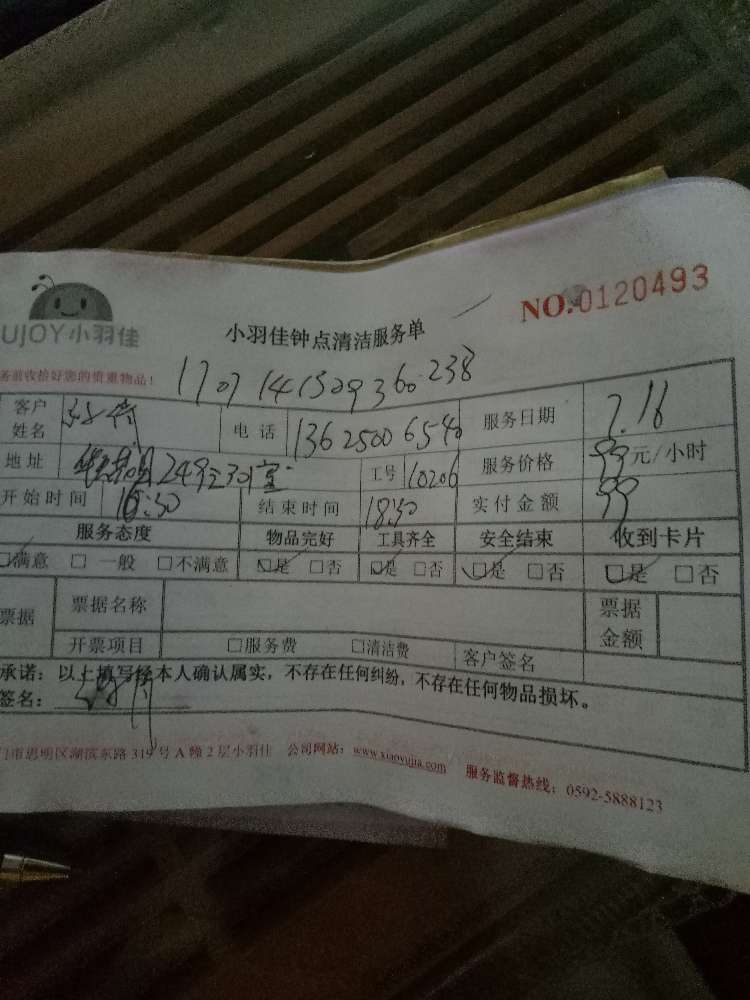 NO.0120493
UJOY小羽佳
小羽佳钟点清洁服务单
务前收拾好您的贵重物品！
客户姓名 电话 13625006540 服务日期 7.16
地址 249之301室 工号 10206 服务价格 99元/小时
开始时间 16:30 结束时间 18:30 实付金额 99
服务态度 物品完好 工具齐全 安全结束 收到卡片
☑满意 □一般 □不满意 ☑是 □否 ☑是 □否 ☑是 □否 ☑是 □否
票据 票据名称 票据金额
开票项目 □服务费 □清洁费 客户签名
承诺：以上填写经本人确认属实，不存在任何纠纷，不存在任何物品损坏。
签名：
门市思明区湖滨东路319号A幢2层小羽佳 公司网站：www.xiaoyujia.com 服务监督热线：0592-5888123